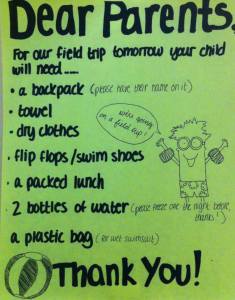 Dear Parents,
For our field trip tomorrow your child
will need.....
• a backpack (please have their name on it)
• towel
• dry clothes
we're going
on a field trip!
• flip flops/swim shoes
• a packed lunch
• 2 bottles of water (please freeze one the night before,
thanks!)
• a plastic bag (for wet swimsuit)
Thank You!